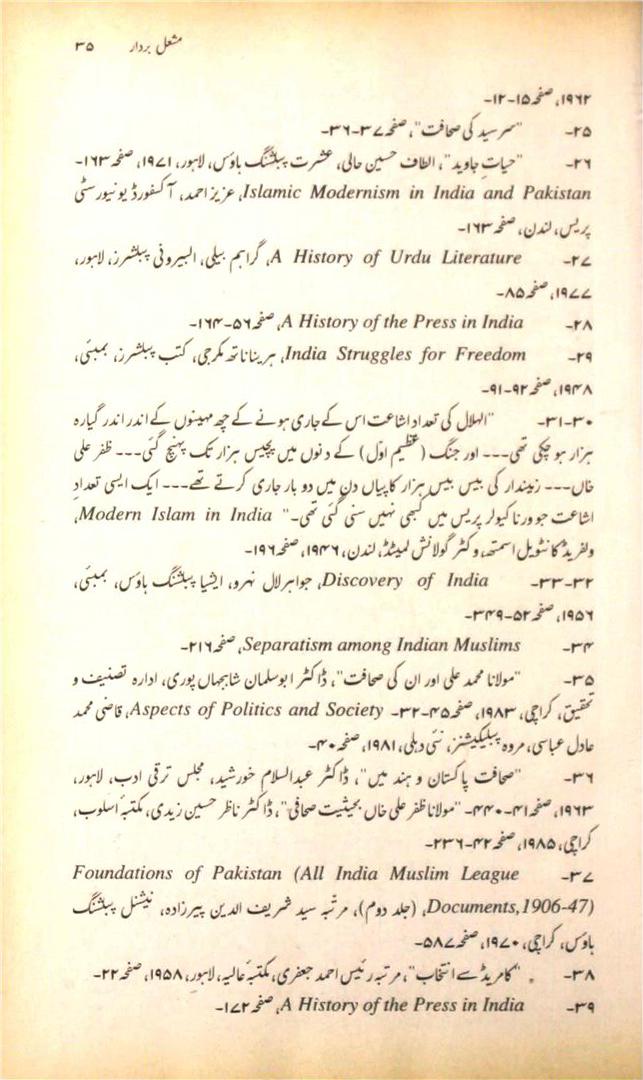 مشعل بردار ۳۵
۱۹۶۲، صفحہ ۱۵-۱۲-
۲۵- "سرسید کی صحافت"، صفحہ ۳۷-۳۶-
۲۶- "حیاتِ جاوید"، الطاف حسین حالی، عشرت پبلشنگ ہاؤس، لاہور، ۱۹۷۱، صفحہ ۱۶۳-
Islamic Modernism in India and Pakistan، عزیز احمد، آکسفورڈ یونیورسٹی
پریس، لندن، صفحہ ۱۶۳-
۲۷- A History of Urdu Literature، گراہم بیلی، البیرونی پبلشرز، لاہور،
۱۹۷۷، صفحہ ۸۵-
۲۸- A History of the Press in India، صفحہ ۵۶-۱۶۴-
۲۹- India Struggles for Freedom، ہریناناتھ مکرجی، کتب پبلشرز، بمبئی،
۱۹۴۸، صفحہ ۹۲-۹۱-
۳۰-۳۱- "الہلال کی تعداد اشاعت اس کے جاری ہونے کے چھ مہینوں کے اندر اندر گیارہ
ہزار ہو چکی تھی--- اور جنگ (عظیم اوّل) کے دنوں میں پچیس ہزار تک پہنچ گئی--- ظفر علی
خاں--- زمیندار کی بیس بیس ہزار کاپیاں دن میں دو بار جاری کرتے تھے--- ایک ایسی تعدادِ
اشاعت جو ورناکیولر پریس میں کبھی نہیں سنی گئی تھی-" Modern Islam in India،
ولفریڈ کانٹویل اسمتھ، وکٹر گولانش لمیٹڈ، لندن، ۱۹۴۶، صفحہ ۱۹۶-
۳۲-۳۳- Discovery of India، جواہر لال نہرو، ایشیا پبلشنگ ہاؤس، بمبئی،
۱۹۵۶، صفحہ ۵۲-۳۴۹-
۳۴- Separatism among Indian Muslims، صفحہ ۲۱۶-
۳۵- "مولانا محمد علی اور ان کی صحافت"، ڈاکٹر ابوسلمان شاہجہاں پوری، ادارہ تصنیف و
تحقیق، کراچی، ۱۹۸۳، صفحہ ۴۵-۳۲- Aspects of Politics and Society، قاضی محمد
عادل عباسی، مروہ پبلیکیشنز، نئی دہلی، ۱۹۸۱، صفحہ ۴۰-
۳۶- "صحافت پاکستان و ہند میں"، ڈاکٹر عبدالسلام خورشید، مجلس ترقی ادب، لاہور،
۱۹۶۳، صفحہ ۴۱-۴۴۰- "مولانا ظفر علی خاں بحیثیت صحافی"، ڈاکٹر ناظر حسین زیدی، مکتبہ اسلوب،
کراچی، ۱۹۸۵، صفحہ ۴۲-۲۳۶-
۳۷- Foundations of Pakistan (All India Muslim League
Documents,1906-47)، (جلد دوم)، مرتّبہ سید شریف الدین پیرزادہ، نیشنل پبلشنگ
ہاؤس، کراچی، ۱۹۷۰، صفحہ ۵۸۷-
۳۸- "کامریڈ سے انتخاب"، مرتبہ رئیس احمد جعفری، مکتبۂ عالیہ، لاہور، ۱۹۵۸، صفحہ ۲۲-
۳۹- A History of the Press in India، صفحہ ۱۷۲-